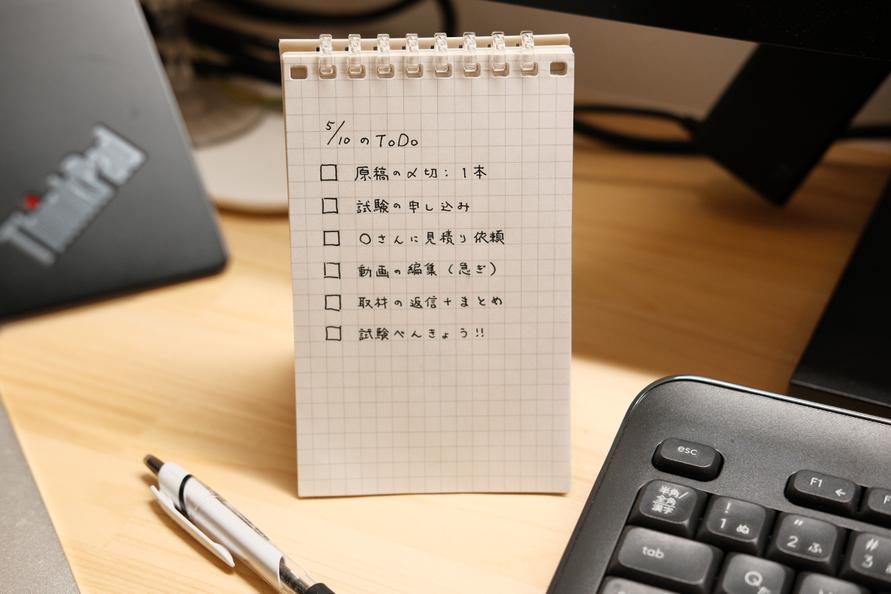 5/10 の ToDo
□ 原稿の〆切：1本
□ 試験の申し込み
□ 〇さんに見積り依頼
□ 動画の編集（急ぎ）
□ 取材の返信＋まとめ
□ 試験べんきょう!!
ThinkPad
esc
F1 ←
半角/
全角
漢字
! 1 ぬ
" 2 ふ
# 3
tab
Q